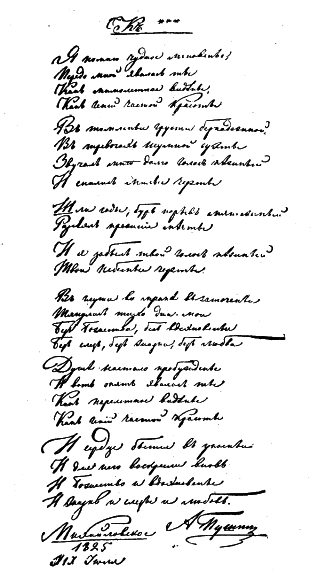 Къ ***
Я помню чудное мгновенье,
Предо мной явилась ты
Какъ мимолетное видѣнье,
Какъ геній чистой красоты
Въ томленьи грусти безнадежной,
Въ тревогахъ шумной суеты
Звучалъ мнѣ долго голосъ нѣжный
И снились милыя черты
Шли годы, бурь порывъ мятежный
Разсѣялъ прежнія мечты
И я забылъ твой голосъ нѣжный
Твои небесныя черты.
Въ глуши во мракѣ заточенья
Тянулись тихо дни мои
Безъ божества, безъ вдохновенья
Безъ слезъ, безъ жизни, безъ любви
Душѣ настало пробужденье
И вотъ опять явилась ты
Какъ мимолетное видѣнье
Какъ геній чистой красоты
И сердце бьется въ упоеньи
И для него воскресли вновь
И Божество и вдохновенье
И жизнь и слезы и любовь.
Михайловское А Пушкинъ
1825
XIX Іюля